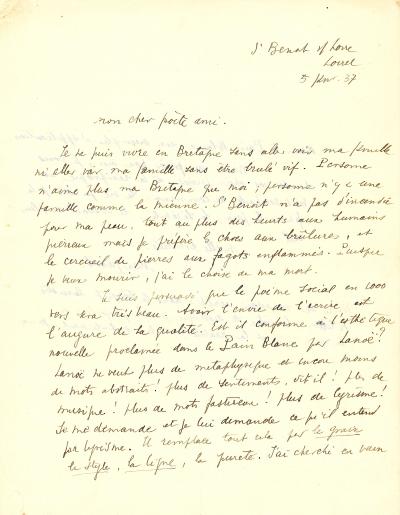 St Benoit s/ Loire
Loiret
5 37
mon cher poëte ami.
Je ne puis vivre en Bretagne sans aller voir ma famille
ni aller voir ma famille sans être brulé vif. Personne
n'aime plus ma Bretagne que moi ; personne n'y a une
famille comme la mienne. St Benoit n'a pas d'incendie
pour ma peau. tout au plus des heurts aux humains
mais je préfère le choc aux brûlures, et
le cercueil de pierres aux fagots enflammés. Puisque
je veux mourir, j'ai le choix de ma mort.
Je suis persuadé que le poème social en 1000
vers sera très beau. Avoir l'envie de l'écrire est
l'augure de la qualité. Est il conforme à l'esthétique
nouvelle proclamée dans le Pain Blanc par Lanoë?
Lanoë ne veut plus de metaphysique et encore moins
de mots abstraits ! plus de sentiments, dit il ! plus de
musique ! plus de mots ! plus de lyrisme !
Je me demande et je lui demande ce qu'il entend
par lyrisme. Il remplace tout cela par le grave
le style, la ligne, la pureté. J'ai cherché en vain